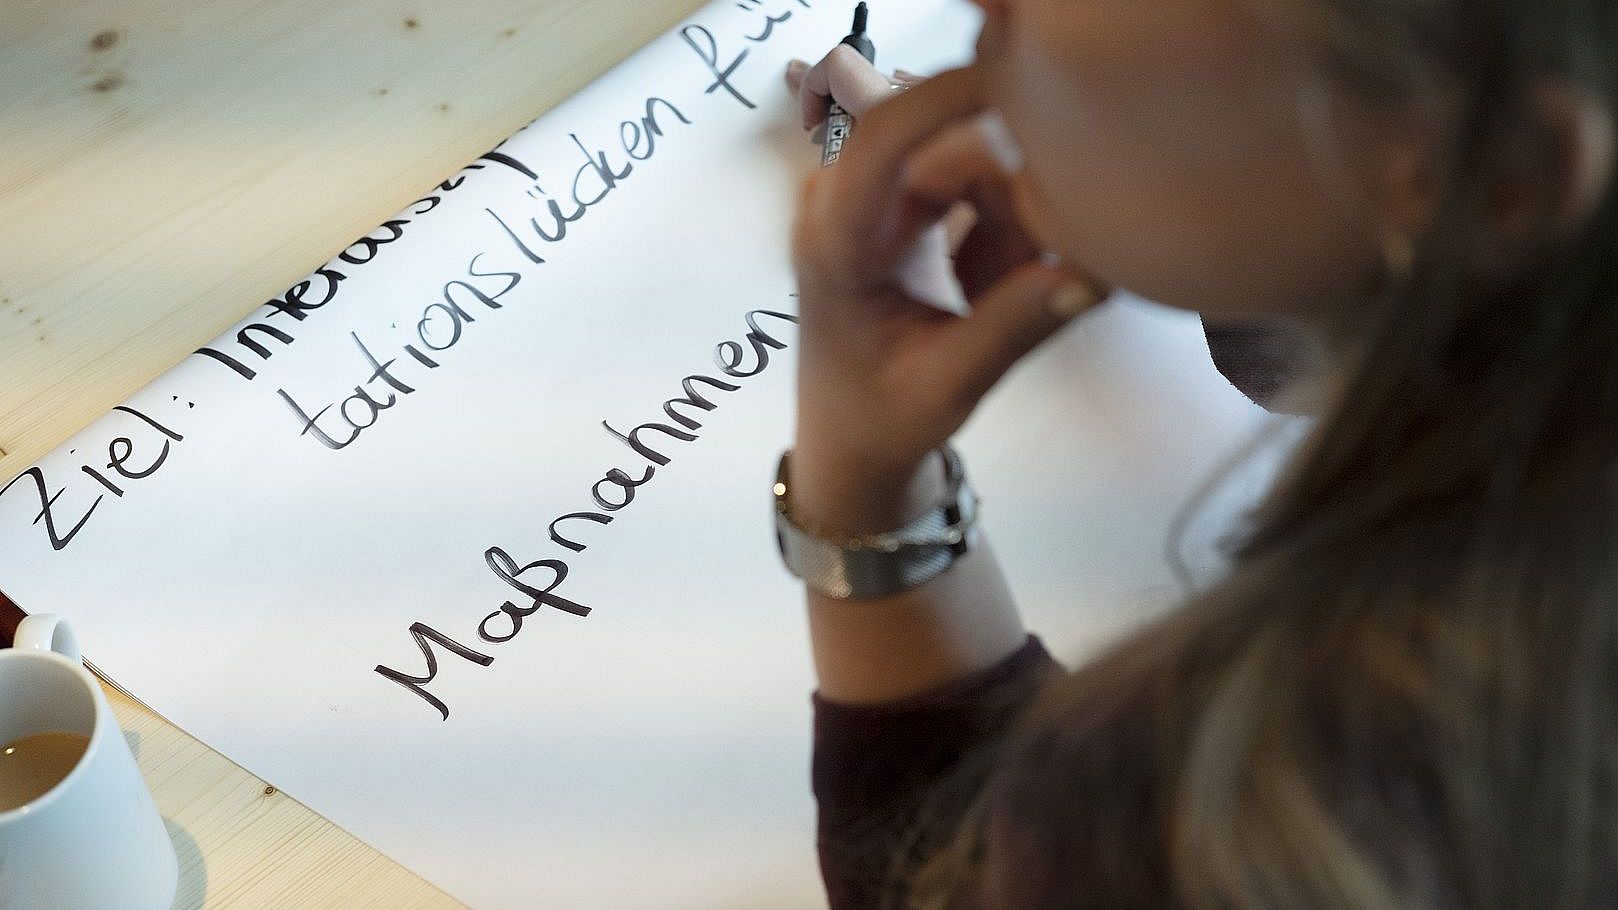 Ziel: Interdiszip
tationslücken für
Maßnahmen: